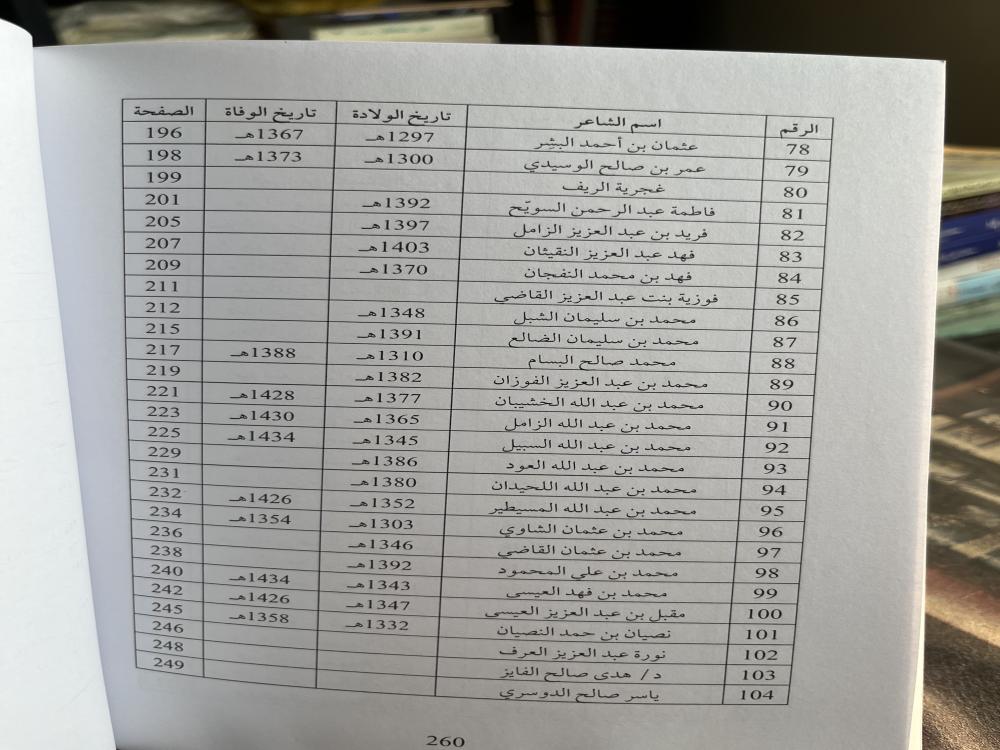 الرقم اسم الشاعر تاريخ الولادة تاريخ الوفاة الصفحة
78 عثمان بن أحمد البشِر 1297هـ 1367هـ 196
79 عمر بن صالح الوسيدي 1300هـ 1373هـ 198
80 غجرية الريف 199
81 فاطمة عبد الرحمن السويّح 1392هـ 201
82 فريد بن عبد العزيز الزامل 1397هـ 205
83 فهد عبد العزيز النقيثان 1403هـ 207
84 فهد بن محمد النفجان 1370هـ 209
85 فوزية بنت عبد العزيز القاضي 211
86 محمد بن سليمان الشبل 1348هـ 212
87 محمد بن سليمان الضالع 1391هـ 215
88 محمد صالح البسام 1310هـ 1388هـ 217
89 محمد بن عبد العزيز الفوزان 1382هـ 219
90 محمد بن عبد الله الخشيبان 1377هـ 1428هـ 221
91 محمد بن عبد الله الزامل 1365هـ 1430هـ 223
92 محمد بن عبد الله السبيل 1345هـ 1434هـ 225
93 محمد بن عبد الله العود 1386هـ 229
94 محمد بن عبد الله اللحيدان 1380هـ 231
95 محمد بن عبد الله المسيطير 1352هـ 1426هـ 232
96 محمد بن عثمان الشاوي 1303هـ 1354هـ 234
97 محمد بن عثمان القاضي 1346هـ 236
98 محمد بن علي المحمود 1392هـ 238
99 محمد بن فهد العيسى 1343هـ 1434هـ 240
100 مقبل بن عبد العزيز العيسى 1347هـ 1426هـ 242
101 نصيان بن حمد النصيان 1332هـ 1358هـ 245
102 نورة عبد العزيز العرف 246
103 د/ هدى صالح الفايز 248
104 ياسر صالح الدوسري 249
260